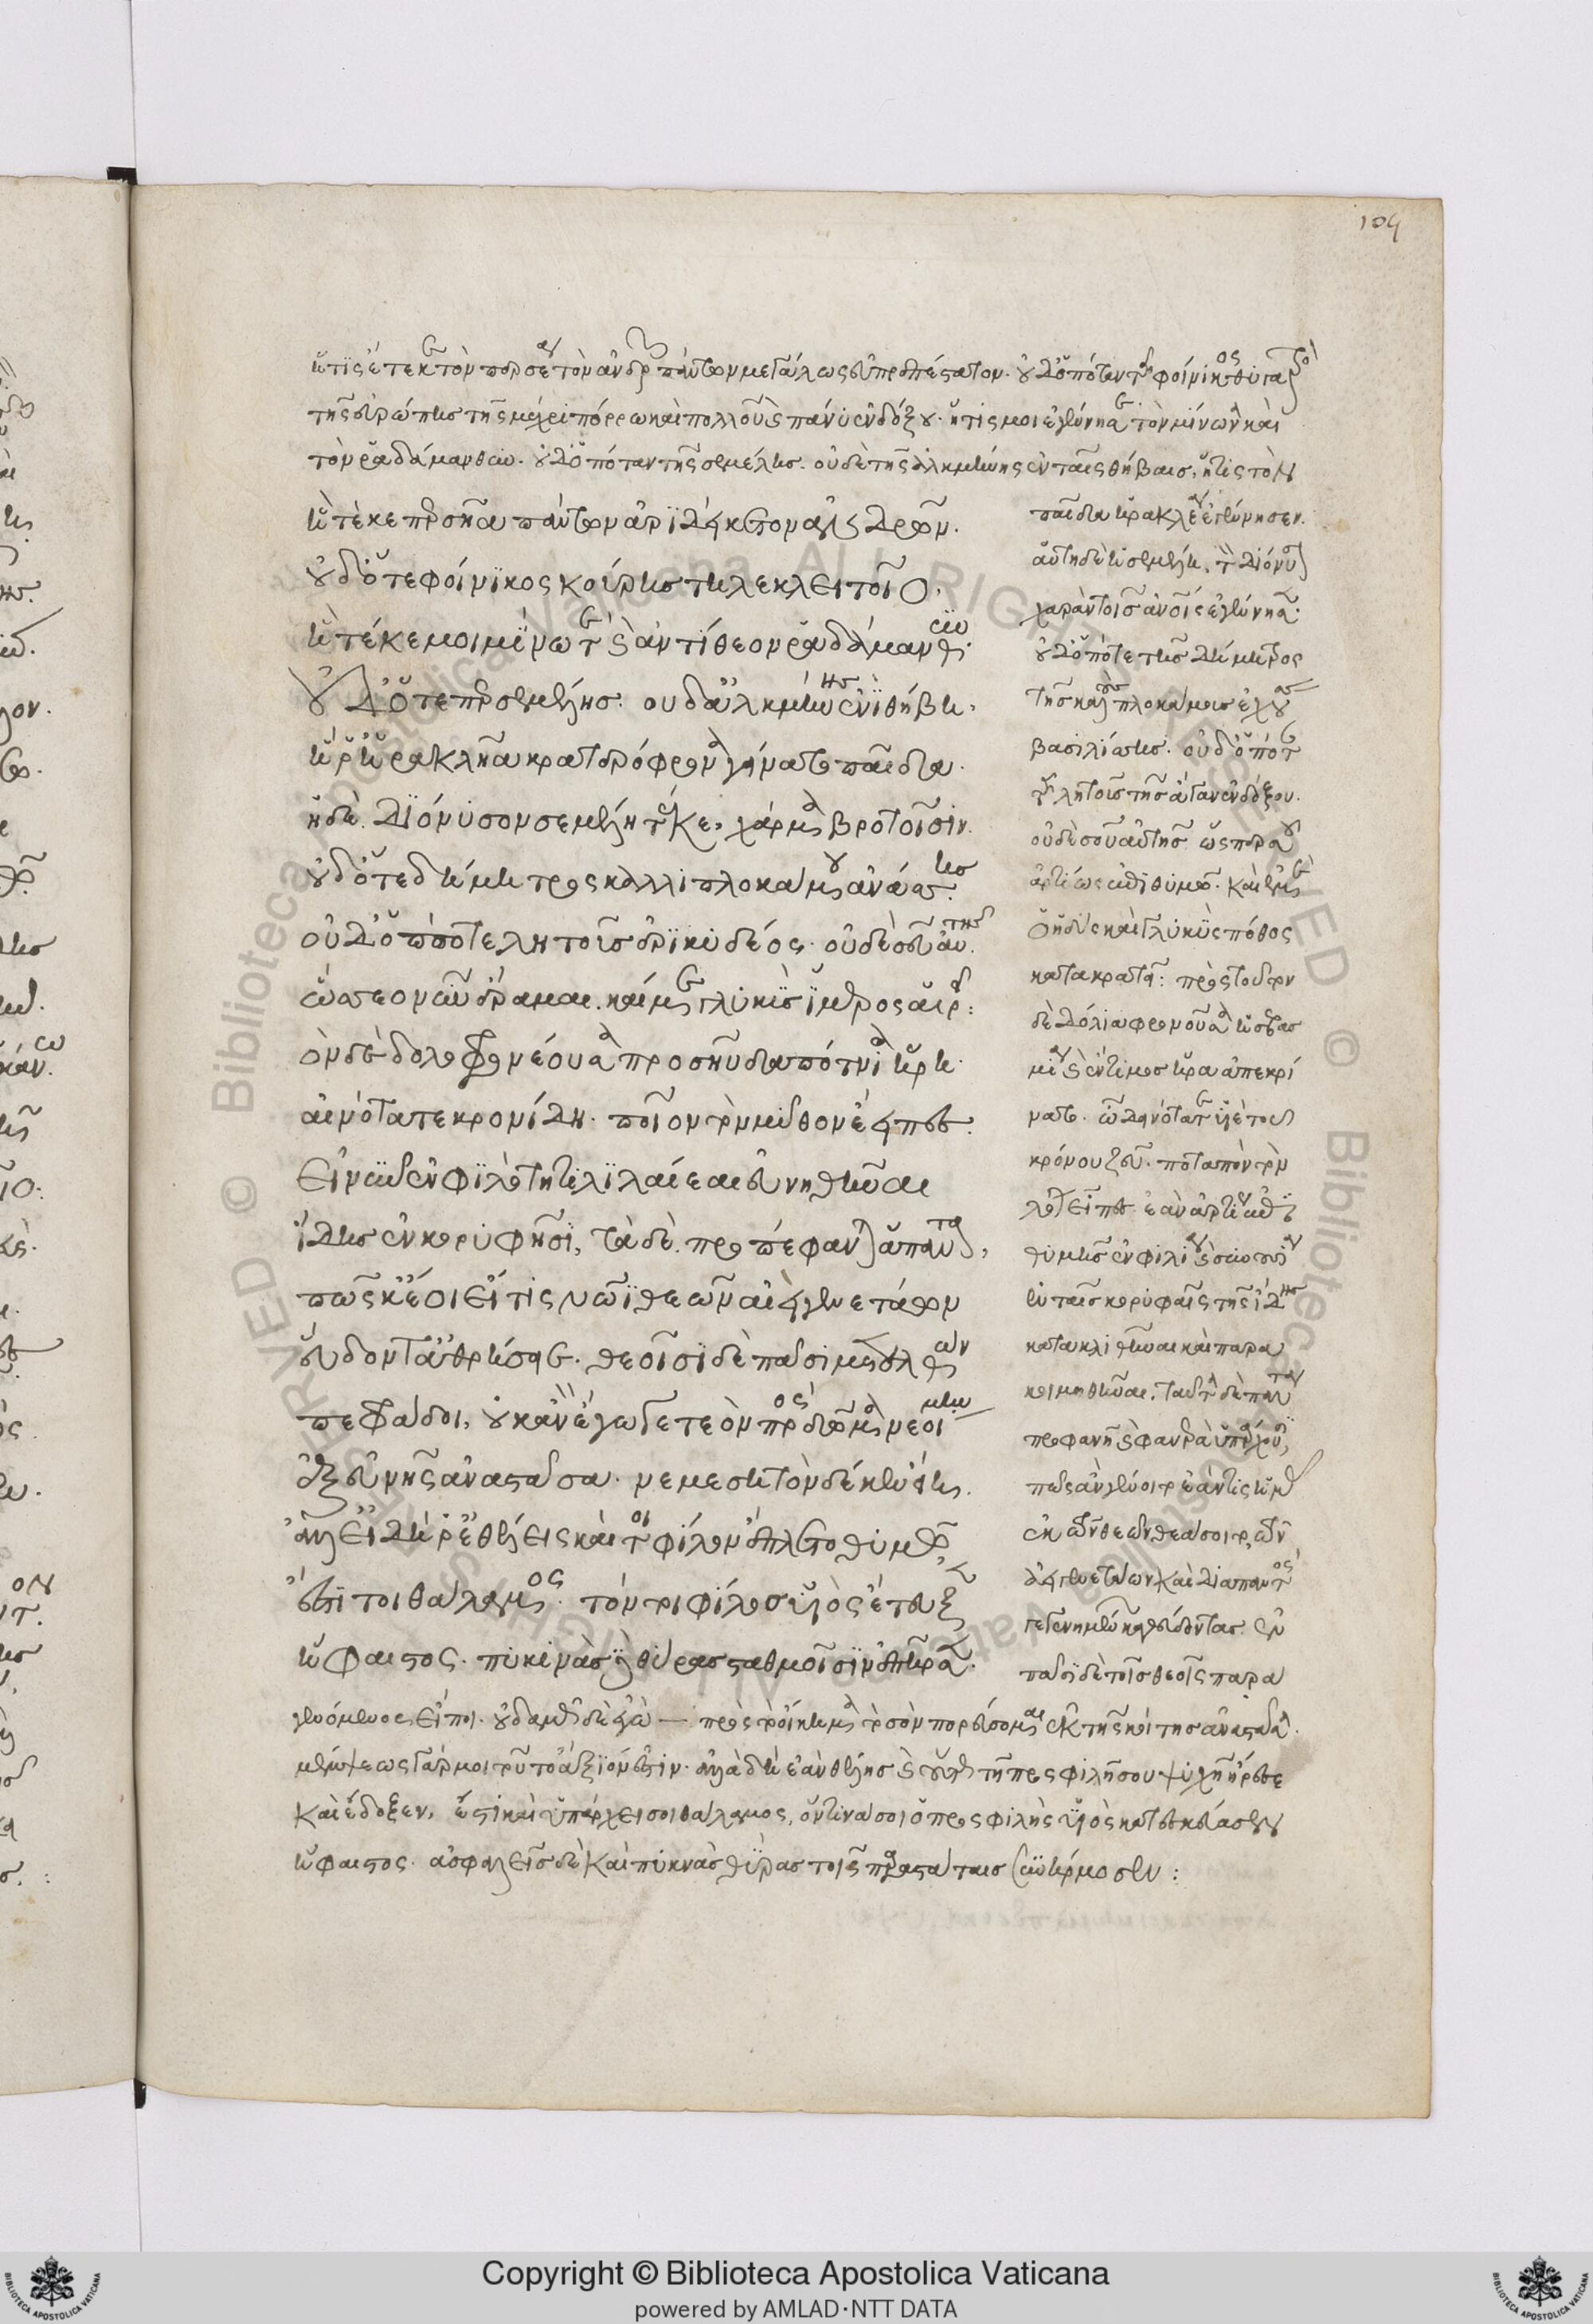 104
ἥτις ἔτεκε τὸν περσέα τὸν ἀνδρῶν πάντων μεγάλως εὐπρεπέστατον. οὐδ' ὁπόταν τοῦ φοίνικος θυγατρὸς
τῆς εὐρώπης τῆς μέχρι πόρρω καὶ πολλοῦ καὶ πάνυ ἐνδόξου. ἥτις μοι ἐγέννησε τὸν μίνωα καὶ
τὸν ῥαδάμανθυν. οὐδ' ὁπόταν τῆς σεμέλης. οὐδὲ τῆς ἀλκμήνης ἐν ταῖς θήβαις, ἥτις τὸν
ἣ τέκε περσῆα πάντων ἀριδείκετον ἀνδρῶν.
οὐδ' ὅτε φοίνικος κούρης τηλεκλειτοῖο.
ἣ τέκε μοι μίνω τε καὶ ἀντίθεον ῥαδάμανθυν.
οὐδ' ὅτε περ σεμέλης. οὐδ' ἀλκμήνης ἐνὶ θήβῃ.
ἥ ῥ' ἡρακλῆα κρατερόφρονα γείνατο παῖδα.
ἡ δὲ διόνυσον σεμέλη τέκε, χάρμα βροτοῖσιν.
οὐδ' ὅτε δήμητρος καλλιπλοκάμου ἀνάσσης.
οὐδ' ὁπότε λητοῦς ἐρικυδέος. οὐδὲ σεῦ αὐτῆς.
ὥς σεο νῦν ἔραμαι. καί με γλυκὺς ἵμερος αἱρεῖ:
τὸν δὲ δολοφρονέουσα προσηύδα πότνια ἥρη.
αἰνότατε κρονίδη. ποῖον τὸν μῦθον ἔειπες.
εἰ νῦν ἐν φιλότητι λιλαίεαι εὐνηθῆναι
ἴδης ἐν κορυφῇσι, τὰ δὲ προπέφανται ἅπαντα,
πῶς κ' ἔοι εἴ τις νῶϊ θεῶν αἰειγενετάων
εὕδοντ' ἀθρήσειε. θεοῖσι δὲ πᾶσι μετελθὼν
πεφράδοι, οὐκ ἂν ἔγωγε τεὸν πρὸς δῶμα νεοίμην
ἐξ εὐνῆς ἀναστᾶσα. νεμεσητὸν δέ κεν εἴη.
ἀλλ' εἰ δή ῥ' ἐθέλεις καί τοι φίλον ἔπλετο θυμῷ,
ἔστι τοι θάλαμος. τόν τοι φίλος υἱὸς ἔτευξεν
ἥφαιστος. πυκινὰς δὲ θύρας σταθμοῖσιν ἐπῆρσεν.
παῖδα ἡρακλέα ἐγέννησεν.
αὕτη δὲ ἡ σεμέλη, τὸν διόνυσον
χαρὰν τοῖς ἀνθρώποις ἐγέννησε.
οὐδ' ὁπότε τῆς δήμητρος
τῆς καλὰς πλοκάμους ἐχούσης
βασιλίσσης. οὐδ' ὁπότε
τῆς λητοῦς τῆς ἄγαν ἐνδόξου.
οὐδὲ σοῦ αὐτῆς ὥς περ σοῦ
ἀρτίως ἐπιθυμῶ. καὶ ἐμὲ
ὁ ἡδὺς καὶ γλυκὺς πόθος
κατακρατεῖ: πρὸς τοῦτον
δὲ δόλια φρονοῦσα ἡ σεβασμία
καὶ ἔντιμος ἥρα ἀπεκρίνατο.
ὦ δεινότατε υἱὲ τοῦ
κρόνου ζεῦ. ποταπὸν τὸν
λόγον εἶπες. ἐὰν ἀρτίως ἐπιθυμῇς
ἐν φιλίᾳ καὶ συνουσίᾳ
ἐν ταῖς κορυφαῖς τῆς ἴδης
κατακλιθῆναι καὶ παρακοιμηθῆναι.
ταῦτα δὲ πάντα
προφανῆ καὶ φανερὰ ὑπάρχουσι,
πῶς ἂν γένοιτο ἐὰν τις ἡμᾶς
ἐκ τῶν θεῶν θεάσοιτο τῶν
ἀειγενετάων καὶ διαπαντὸς
γεγενημένων καθεύδοντας. ἐν
πᾶσι δὲ τοῖς θεοῖς παραγενόμενος
εἴποι. οὐδαμῶς δὲ ἐγὼ — πρὸς τὸ οἴκημα τὸ σὸν πορεύσομαι ἐκ τῆς κοίτης ἀναστᾶσα.
μέμψεως γάρ μοι τοῦτο ἄξιόν ἐστιν. ἀλλὰ δὴ ἐὰν θέλῃς καὶ τοῦτο τῇ προσφιλῇ σου ψυχῇ ἤρεσε
καὶ ἔδοξεν, ἔστι καὶ ὑπάρχει σοι θάλαμος, ὅντινα σοι ὁ προσφιλὴς υἱὸς κατεσκεύασεν
ἥφαιστος. ἀσφαλεῖς δὲ καὶ πυκνὰς θύρας τοῖς παραστάταις συνήρμοσεν:
Copyright © Biblioteca Apostolica Vaticana
powered by AMLAD·NTT DATA